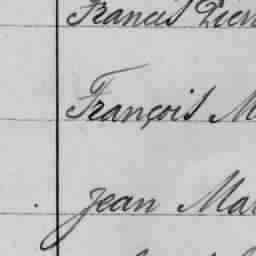 Francis
François M
Jean Mar